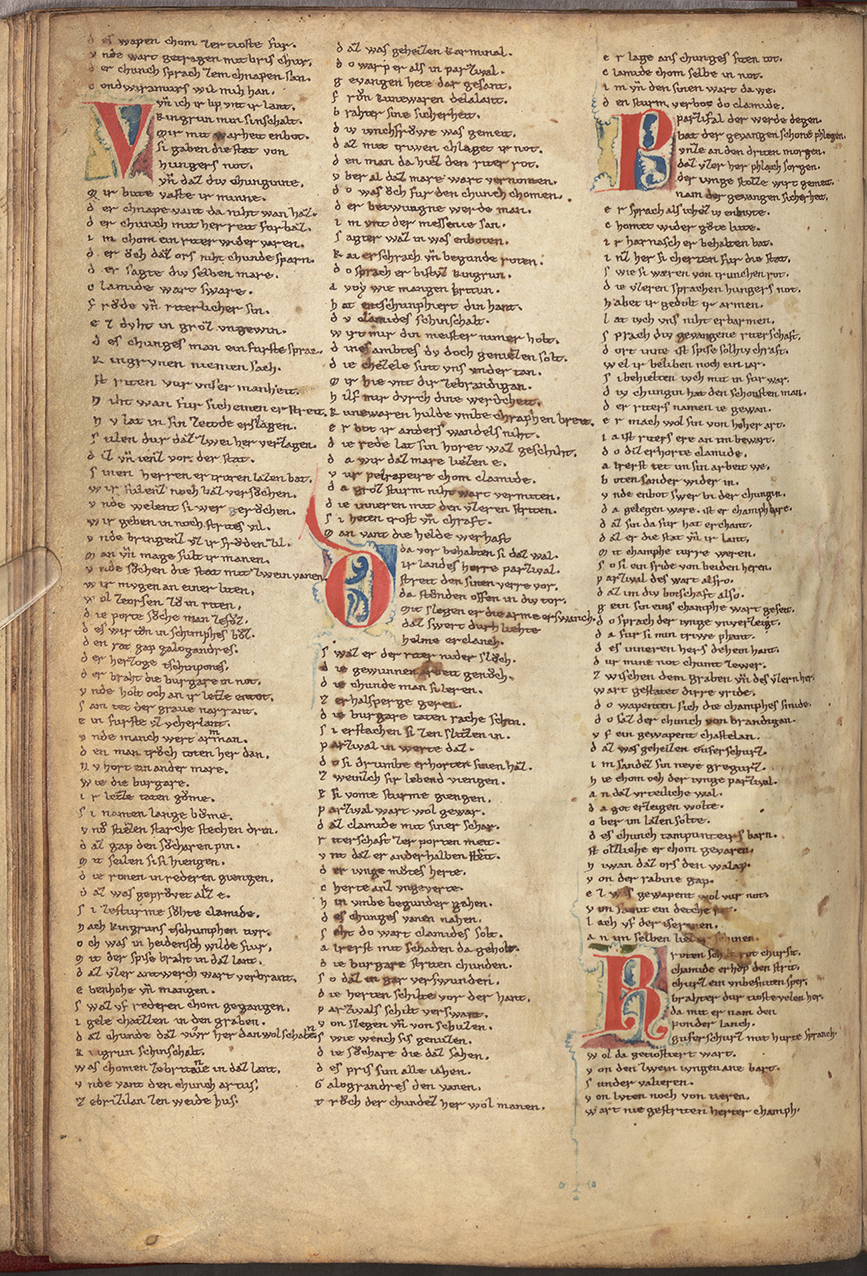 d es wapen chom zer tioste fur.
v nde wart getragen mit bris chur,
d er chunch sprach zem chnapen san.
c ondwiramurs wil mich han,
V vñ ich ir lip vnt ir lant.
kingrun min sinschalt.
Mir mit warheit enbot.
Si gaben die stat von
hungers not.
vñ daz diu chuniginne,
M ir bute vaste ir minne.
d er chnape vant da niht wan haz.
d er chunch mit her reit furbaz.
i m chom ein riter wider varen.
d er öch daz ors niht chunde sparn.
d er sagte diu selben mære.
c lamide wart sware.
f röde vñ riterlicher sin.
e z dvht in groz vngewin.
d es chunges man ein furste sprac.
k ingrvnen niemen sach.
st riten vur vnser manheit.
N iht wan fur sich einen er streit.
N v lat in sin ze tode erslagen.
S ulen dur daz zwei her verzagen.
d iz vñ ienz vor der stat.
S inen herren er truren lazen bat.
w ir suleniz noch baz versöchen.
v nde welent si wer geröchen.
w ir geben in noch strites vil.
v nde bringenz vz ir fröden zil.
M an vñ mage sult ir manen.
v nde söchen die stat mit zwein vanen.
w ir mvgen an einer liten,
w ol ze orsen zö in riten,
d ie porte söche man ze föz.
d es wir tön in schimphes böz.
d en rat gap galogandres.
d er herzoge tschipones.
d er braht die burgare in not.
v nde holt och an ir letze den tot.
S am tet der grave narrant.
e in furste vz vcherlant.
v nde manch wert arman.
d en man tröch toten her dan,
N v hort ein ander mare.
w ie die burgare.
i r letze taten göme.
S i namen lange böme.
v nde stiezen starche stechen drin.
d az gap den söcharen pin.
M it seilen si si hiengen.
d ie ronen in rederen giengen.
d az was geprövet allez e.
S i ze sturme söhte clamide.
N ach kingruns eschumphentiur.
o ch was in heidensch wilde fiur,
M it der spise braht in daz lant.
d az vzer antwerch wart verbrant.
e benhohe vñ mangen.
S waz vf rederen chom gegangen.
i gele chatzen in den graben.
d az chunde daz viur her dan wol schaben.
K ingrun schinschalt.
was chomen ze britane in daz lant.
v nde vant den chunch artus,
z e brizilan zen weide hus.
d az was geheizen karminal.
d o warp er als in parzival.
g evangen hete dar gesant.
f rön kunewaren delalant.
b rahter sine sicherheit.
d iv ivnchfröwe was gemeit.
d az mit triwen chlaget ir not.
d en man da hiez den riter rot.
v ber al daz mare wart vernomen.
d o was öch fur den chunch chomen.
d er betwungne werde man.
i m vnt der messenie san.
S agter waz in was enboten.
K ai erschrach vñ begunde roten.
d o sprach er bistvz kingrun.
a voy wie mangen britun.
h at entschunphiert din hant.
d v clamides schinschalt.
w irt mir din meister nimer holt.
d ines ambtes dv doch geniezen solt.
d ie chezele sint vns vnder tan.
M ir hie vnt dir ze brandigan.
h ilf mir dvrch dine werdicheit.
k unewaren hulde vmbe chraphen breit.
e r bot ir anders wandels niht.
d ie rede lat sin horet waz geschiht.
d a wir daz mare liezen e.
v ur pelrapeire chom clamide.
d a groz sturm niht wart vermiten.
d ie inneren mit den vzeren striten.
S i heten trost vñ chraft.
M an vant die helde werhaft
D da vor behabten si daz wal.
ir landes herre parzival.
streit den sinen verre vor.
da stönden offen in div tor.
Mit slegen er die arme erswanch.
daz swert durh liehte
helme erclanch.
S waz er der riter nider slöch.
d ie gewunnen arbeit genöch.
d ie chunde man si leren.
z er halsperge geren.
d ie burgare taten rache schin.
S i erstachen si zen slitzen in.
p arzival in werte daz.
d o si drumbe erhorten sinen haz.
z weinzich sir lebend viengen.
E si vome sturme giengen.
p arzival wart wol gewar.
d az clamide mit siner schar.
r iterschaft zer porten meit.
v nt daz er anderhalben streit.
d er ivnge mötes herte.
c herte anz vngeverte.
h in vmbe begunder gahen.
d es chunges vanen nahen.
S eht do wart clamides solt.
a lrerst mit schaden da geholt.
d ie burgare striten chunden.
S o daz in gar verswunden.
d ie herten schilte vor der hant.
p arzivals schilt verswant.
v on slegen vñ von schuzen.
S wie wench sis genuzen.
d ie söchare die daz sahen.
d es pris sim alle iahen.
G alograndres den vanen.
t röch der chunde daz her wol manen.
e r lage ans chunges siten tot.
c lamide chom selbe in not.
i m vñ den sinen wart da we.
d en sturm verbot do clamide.
P parzifal der werde degen.
bat der gevangen schone phlegen.
vnze an den driten morgen.
daz vzer her phlach sorgen.
der ivnge stolze wirt gemeit.
nam der gevangen sicherheit.
e r sprach als ichz iv enbiute.
c homet wider göte liute.
i r harnasch er behalten bat.
i nz her si cherten fur die stat.
S wie si wæren von trunchen rot.
d ie vzeren sprachen hungers not.
h abet ir gedolt ir armen.
l at ivch vns niht erbarmen.
S prach div gevangene riterschaft.
d ort inne ist spise solhiv chraft.
w elt ir beliben noch ein iar.
S i behielten ivch mit in fur war.
d iv chungin hat den schonsten man.
d er riters namen ie gewan.
e r mach wol sin von hoher art.
i a ist riters ere an im bewart.
d o diz erhorte clamide,
a lrerst tet im sin arbeit we,
b oten sander wider in.
v nde enbot swer bi der chungin,
d a gelegen ware. ist er champhbare.
d az sin da fur hat erchant.
d az er die stat vñ ir lant,
M it champhe turre weren.
S o si ein fride von beiden heren.
p arzival des wart alfro.
d az im div botschaft also.
g ein sin eins champhe wart geseit.
d o sprach der ivnge vnverzeigt.
d a fur si min triwe phant.
d es inneren hers dehein hant.
d ur mine not chumt ze wer.
z wischen dem graben vñ des vzern her.
wart gestatet dirre vride.
d o wapenten sich die champhes smide.
d o saz der chunch von brandigan.
v f ein gewapent chastelan.
d az was geheizen guverschurz.
i m sandez sin neve gregurz.
h ie chom och der ivnge parzival.
a n daz vrteiliche wal.
d a got erzeigen wolte.
o b er im lazen solte.
d es chunch tampunteirs barn.
st olzliche er chom gevaren,
N iwan daz ors den walap.
v on der rabine gap.
e z was gewapent wol vur not.
v on samit ein deche rot.
l ach vf der iserinen.
a n im selben liez er schinen.
R roten schilt rot chursit.
clamide erhöp den strit.
churz ein vnbesniten sper.
brahter dur tioste velen her.
da mit er nam den
poinder lanch.
guverschurz mit hurte spranch.
w ol da getiostiert wart.
v on den zwein ivngen ane bart.
S under valieren.
v on luten noch von tieren.
wart nie gestriten herter champh.